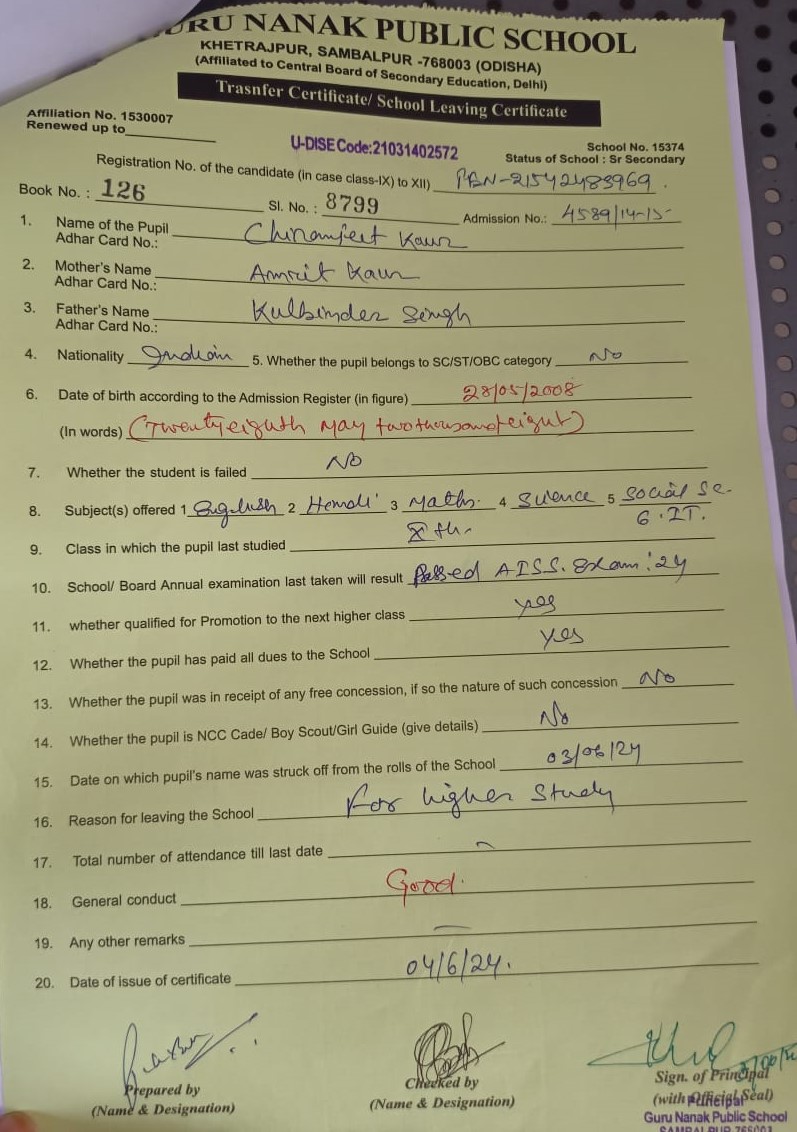 URU NANAK PUBLIC SCHOOL
KHETRAJPUR, SAMBALPUR -768003 (ODISHA)
(Affiliated to Central Board of Secondary Education, Delhi)
Trasnfer Certificate/ School Leaving Certificate
Affiliation No. 1530007
Renewed up to
U-DISE Code:21031402572
School No. 15374
Status of School : Sr Secondary
Registration No. of the candidate (in case class-IX) to XII) PEN-21542483969.
Book No. : 126 Sl. No. : 8799 Admission No.: 4589/14-15
1. Name of the Pupil Chiramjeet Kaur
Adhar Card No.:
2. Mother's Name Amrit Kaur
Adhar Card No.:
3. Father's Name Kulbinder Singh
Adhar Card No.:
4. Nationality Indian 5. Whether the pupil belongs to SC/ST/OBC category No
6. Date of birth according to the Admission Register (in figure) 28/05/2008
(In words) (Twenty eighth May two thousand eight)
7. Whether the student is failed No
8. Subject(s) offered 1 English 2 Hindi 3 Maths. 4 Science 5 Social Sc.
6. IT.
9. Class in which the pupil last studied Xth.
10. School/ Board Annual examination last taken will result Passed AISS. Exam:'24
11. whether qualified for Promotion to the next higher class yes
12. Whether the pupil has paid all dues to the School yes
13. Whether the pupil was in receipt of any free concession, if so the nature of such concession No
14. Whether the pupil is NCC Cade/ Boy Scout/Girl Guide (give details) No
15. Date on which pupil's name was struck off from the rolls of the School 03/06/24
16. Reason for leaving the School For higher Study
17. Total number of attendance till last date
18. General conduct Good.
19. Any other remarks —
20. Date of issue of certificate 04/6/24.
Prepared by
(Name & Designation)
Checked by
(Name & Designation)
Sign. of Principal
(with Official Seal)
Principal
Guru Nanak Public School
SAMBALPUR 768003